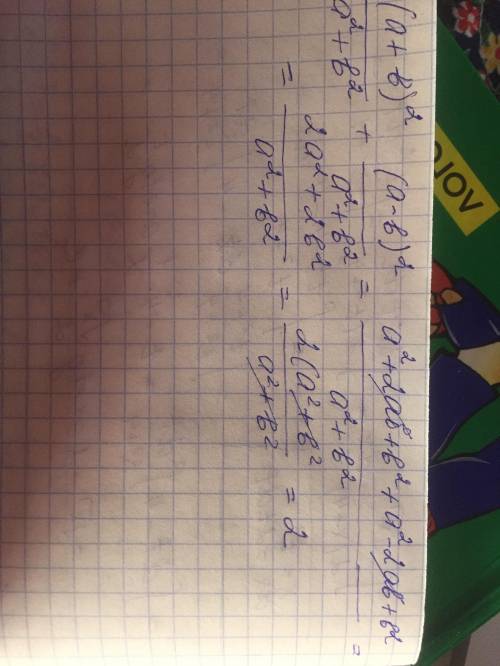 (a+b)²/(a²+b²) + (a-b)²/(a²+b²) = (a²+2ab+b²+a²-2ab+b²)/(a²+b²) =
= (2a²+2b²)/(a²+b²) = 2(a²+b²/(a²+b²) = 2